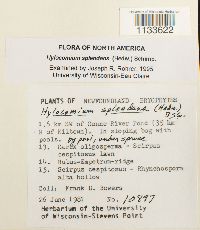 1133622
FLORA OF NORTH AMERICA
Hylocomium splendens (Hedw.) Schimp.
Examined by Joseph R. Rohrer, 1995
University of Wisconsin-Eau Claire
PLANTS OF NEWFOUNDLAND, BRYOPHYTES
Hylocomium splendens (Hedw.)
B.S.G.
1.5 km SW of Goose River Pond (35 km
N of Hiltown). In sloping bog with
pools. by pool, under spruce
13. Carex oligosperma - Scirpus
cespitosus lawn
14. Rubus-Empetrum-ridge
15. Scirpus cespitosus - Rhynchospora
alba hollow
Coll: Frank D. Bowers
26 June 1981 No. 10897
Herbarium of the University
of Wisconsin-Stevens Point